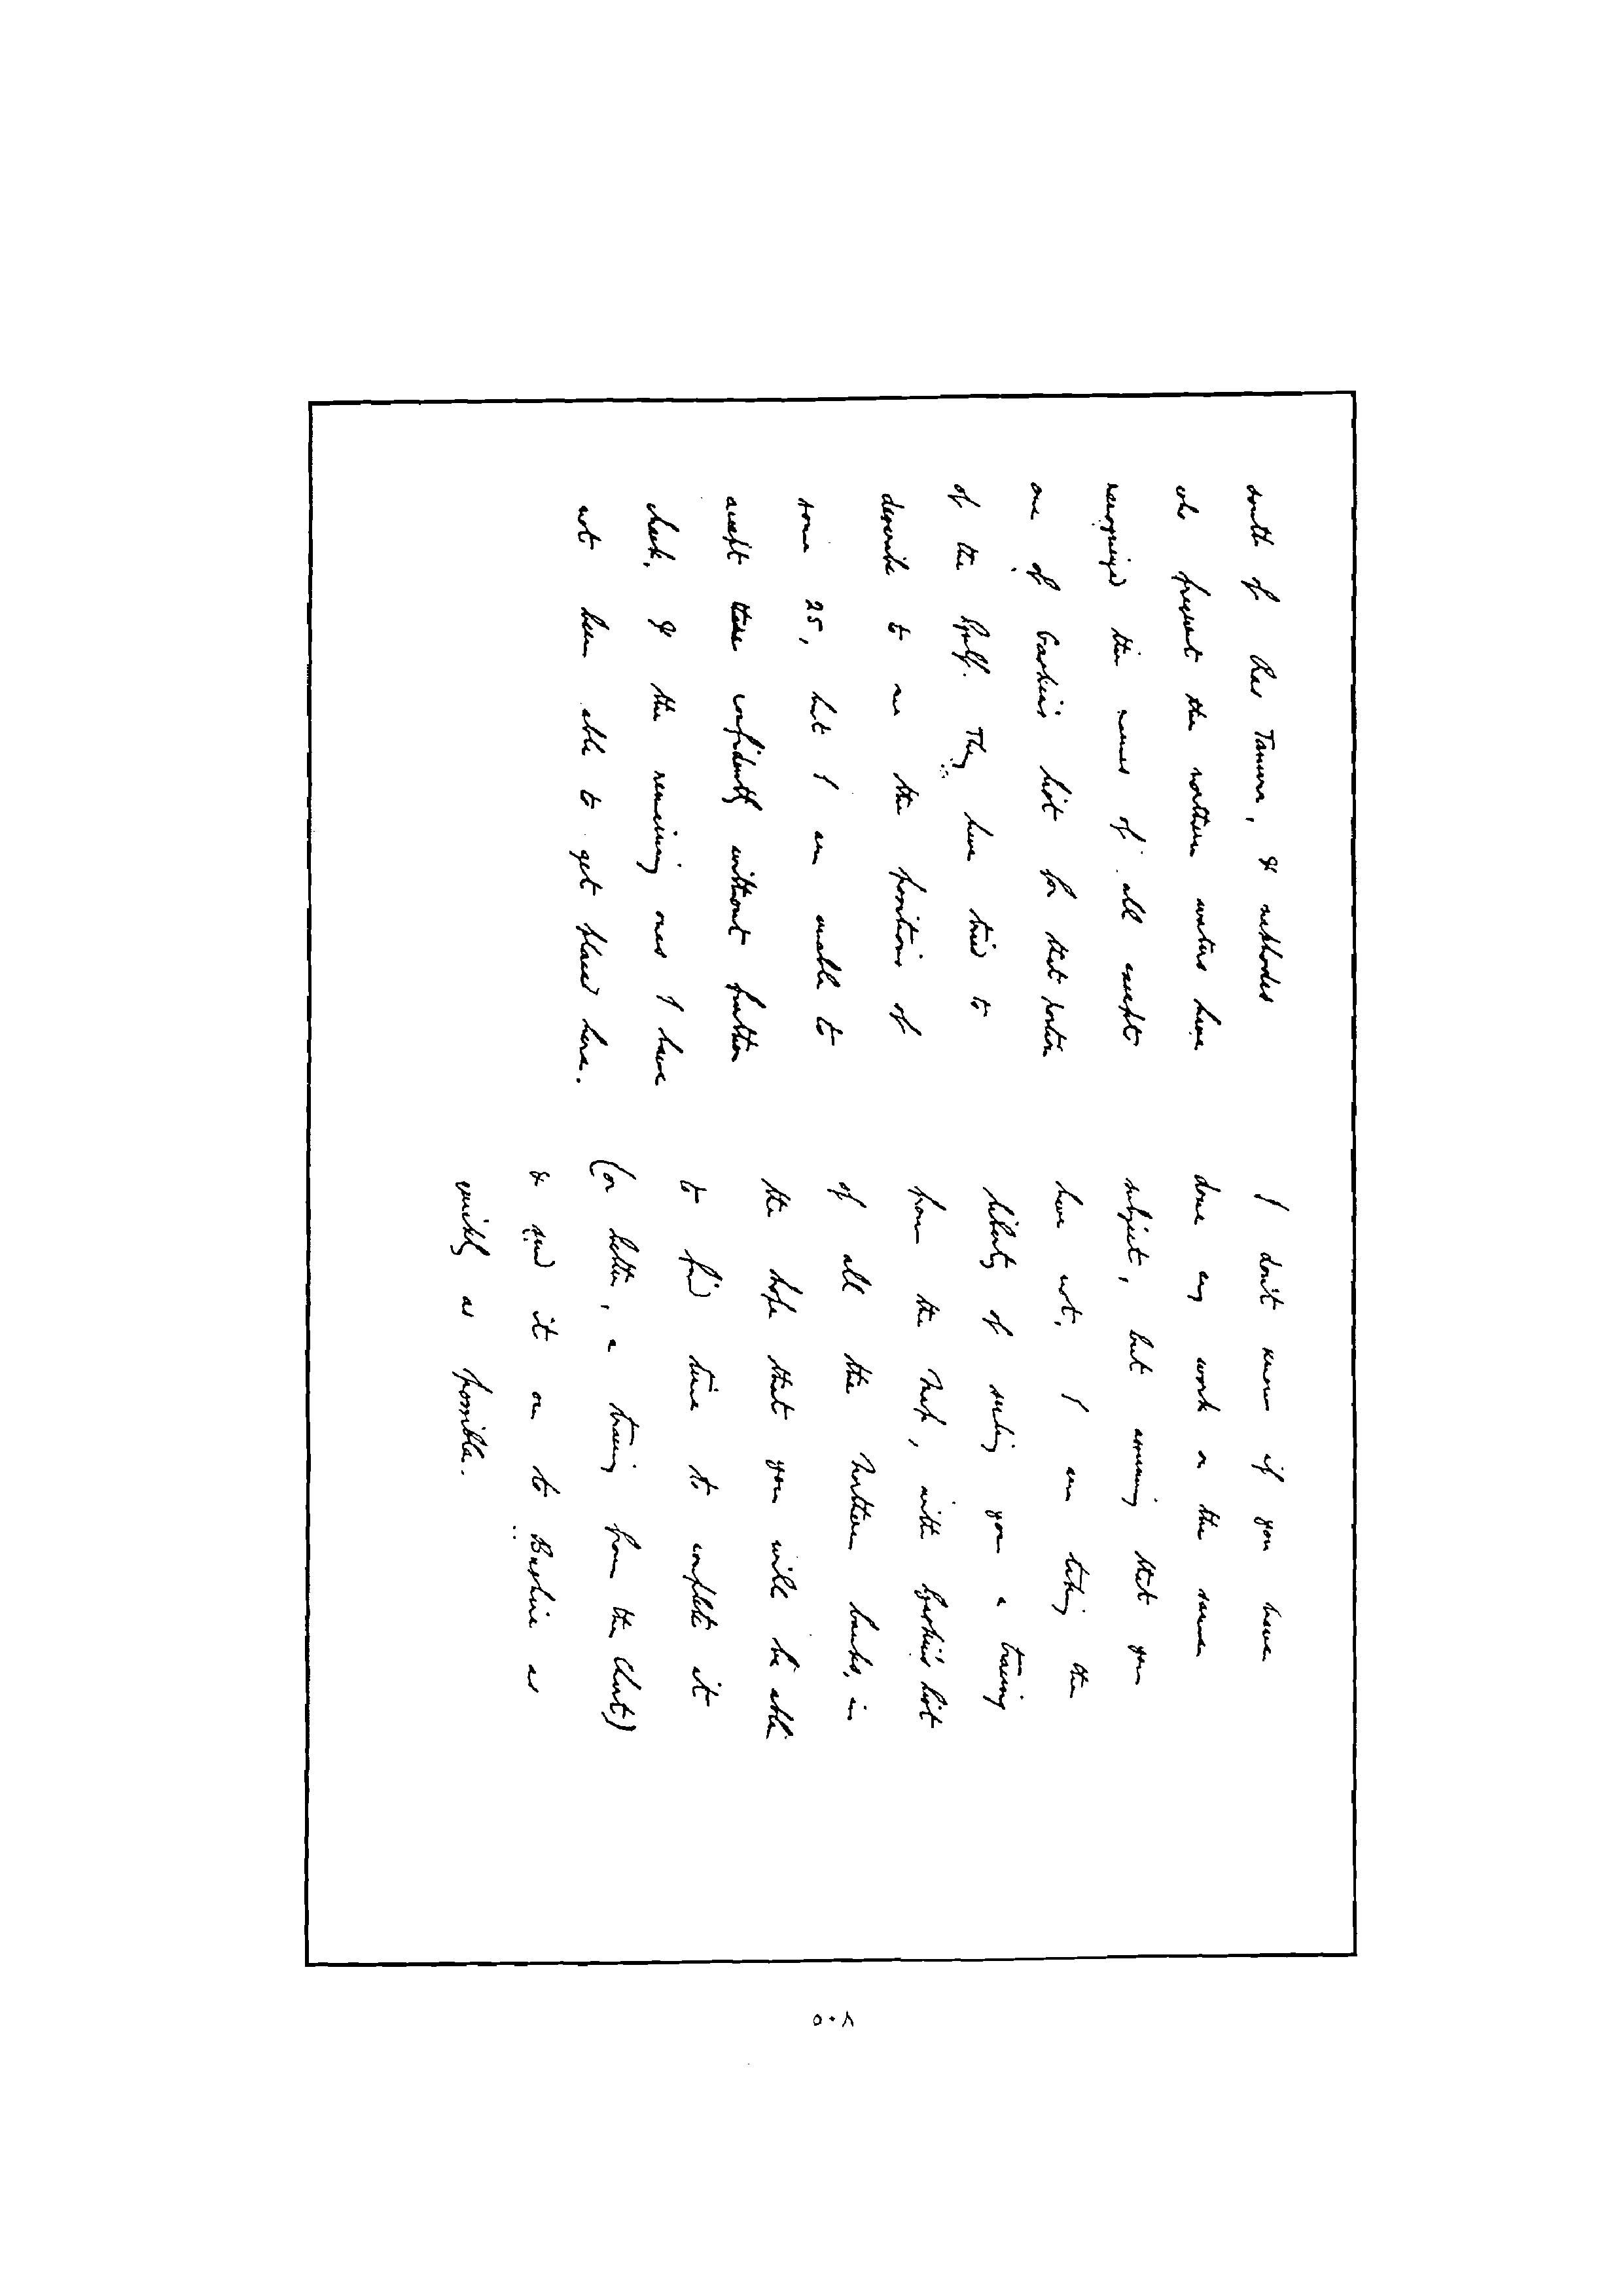 south of Ras Tanura, & nakhodas
who frequent the northern waters have
recognized the names of all except
one of Gaskin's list for that portion
of the Gulf. They have tried to
describe to me the positions of
some 25, but I am unable to
accept these confidently without further
check, & the remaining ones I have
not been able to get placed here.
I don't know if you have
done any work on the same
subject, but assuming that you
have not, I am taking the
liberty of sending you a tracing
from the Map, with Gaskin's list
of all the Northern banks, in
the hope that you will be able
to find time to complete it
(or better, a tracing from the Chart)
& send it on to Bushire as
quickly as possible.
٥٠٨